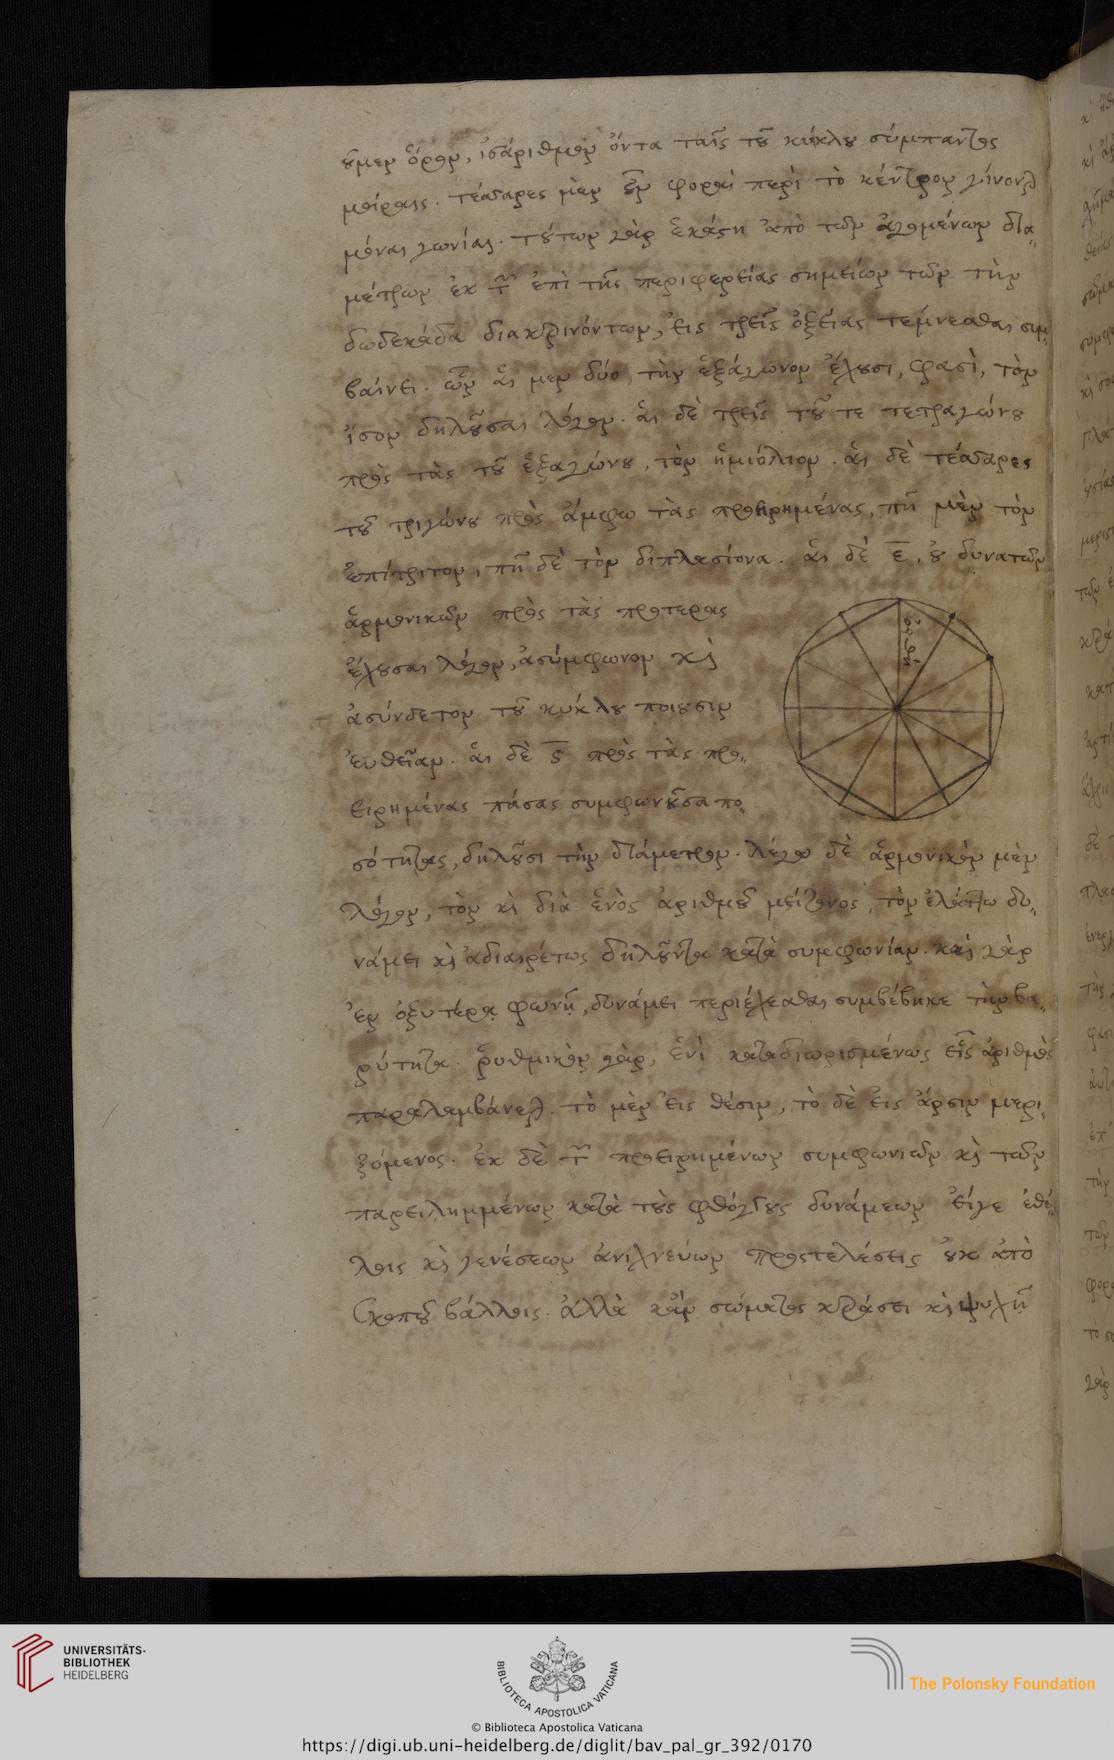 οῦμεν ὅρον, ἰσάριθμον ὄντα ταῖς τοῦ κύκλου σύμπαντος
μοίραις. τέσσαρες μὲν οὖν φοραὶ περὶ τὸ κέντρον γίνονται
μόναι γωνίαι. τούτων γὰρ ἑκάστη ἀπὸ τῶν ἀγομένων δια-
μέτρων ἐκ τῶν ἐπὶ τῆς περιφερείας σημείων τῶν τὴν
δωδεκάδα διακρινόντων, εἰς τρεῖς ὀξείας τέμνεσθαι συμ-
βαίνει. ὧν αἱ μὲν δύο, τὴν ἑξάγωνον ἔχουσι, φασὶ, τὸν
ἴσον δηλοῦσαι λόγον. αἱ δὲ τρεῖς τοῦ τε τετραγώνου
πρὸς τὰς τοῦ ἑξαγώνου, τὸν ἡμιόλιον. αἱ δὲ τέσσαρες
τοῦ τριγώνου πρὸς ἄμφω τὰς προειρημένας, πῆ μὲν τὸν
ἐπίτριτον, πῆ δὲ τὸν διπλασίονα. αἱ δὲ ε, οὐ δυνατῶν
ἁρμονικῶν πρὸς τὰς προτέρας
ἔχουσαι λόγον, ἀσύμφωνον καὶ
ἀσύνδετον τοῦ κύκλου ποιοῦσιν
εὐθεῖαν. αἱ δὲ ς πρὸς τὰς προ-
ειρημένας πάσας συμφωνοῦσαι πο-
ὀρθή
σότητας, δηλοῦσι τὴν διάμετρον. λέγω δὲ ἁρμονικὸν μὲν
λόγον, τὸν καὶ διὰ ἑνὸς ἀριθμοῦ μείζονος, τὸν ἐλάττω δυ-
νάμει καὶ ἀδιαιρέτως δηλοῦντα κατὰ συμφωνίαν. καὶ γὰρ
ἐν ὀξυτέρᾳ φωνῇ, δυνάμει περιέχεσθαι συμβέβηκε τὴν βα-
ρύτητα. ῥυθμικὸν γὰρ, ἑνὶ καταδιωρισμένως εἷς ἀριθμὸς
παραλαμβάνεται. τὸ μὲν εἰς θέσιν, τὸ δὲ εἰς ἄρσιν μερι-
ζόμενος. ἐκ δὲ τῶν προειρημένων συμφωνιῶν καὶ τῶν
παρειλημμένων κατὰ τοὺς φθόγγους δυνάμεων εἴγε ἐθέ-
λοις καὶ γενέσεων ἀνιχνεύων προστελέσεις οὐκ ἀπὸ
σκοποῦ βάλλοις. ἀλλὰ κἂν σώματος κράσει καὶ ψυχῆ
UNIVERSITÄTS-
BIBLIOTHEK
HEIDELBERG
BIBLIOTECA APOSTOLICA VATICANA
The Polonsky Foundation
© Biblioteca Apostolica Vaticana
https://digi.ub.uni-heidelberg.de/diglit/bav_pal_gr_392/0170